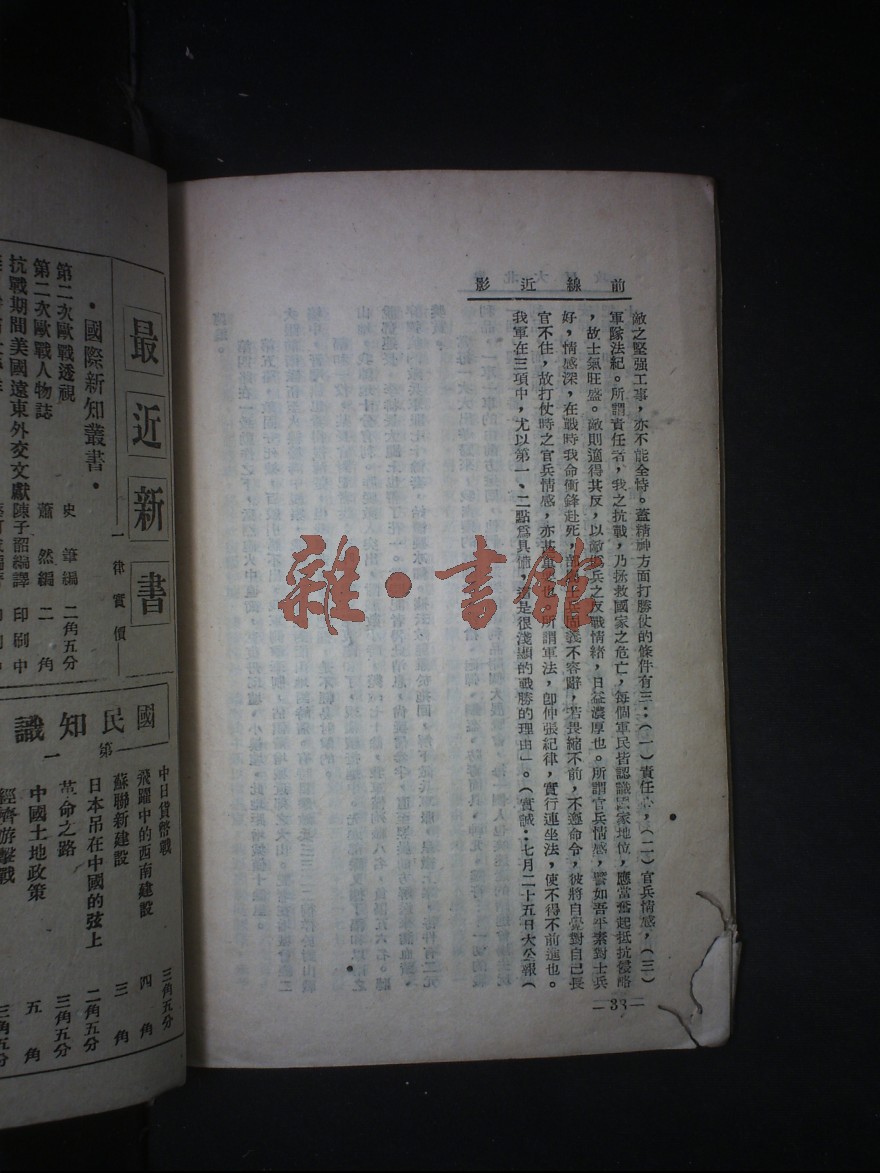 前線近影
敵之堅强工事，亦不能全恃。蓋精神方面打勝仗的條件有三：（一）責任心，（二）官兵情感，（三）
軍隊法紀。所謂責任者，我之抗戰，乃拯救國家之危亡，每個軍民皆認識國家地位，應當奮起抵抗侵略
，故士氣旺盛。敵則適得其反，以敵士兵之反戰情緒，日益濃厚也。所謂官兵情感，譬如吾平素對士兵
好，情感深，在戰時我命衝鋒赴死，部屬士兵固義不容辭，若畏縮不前，不遵命令，彼將自覺對自己長
官不住，故打仗時之官兵情感，亦甚重要也。所謂軍法，卽伸張紀律，實行連坐法，使不得不前進也。
我軍在三項中，尤以第一、二點爲具備，這是很淺顯的戰勝的理由」。（實誠：七月二十五日大公報（
33
雜·書館
最近新書
一律實價
·國際新知叢書·
第二次歐戰透視 史筆編 二角五分
第二次歐戰人物誌 蕭然編 二角
抗戰期間美國遠東外交文獻 陳子韶編譯 印刷中
國民知識
第一
中日貨幣戰 三角五分
飛躍中的西南建設 四角
蘇聯新建設 三角
日本吊在中國的弦上 二角五分
革命之路 三角五分
中國土地政策 五角
經濟游擊戰 三角五分